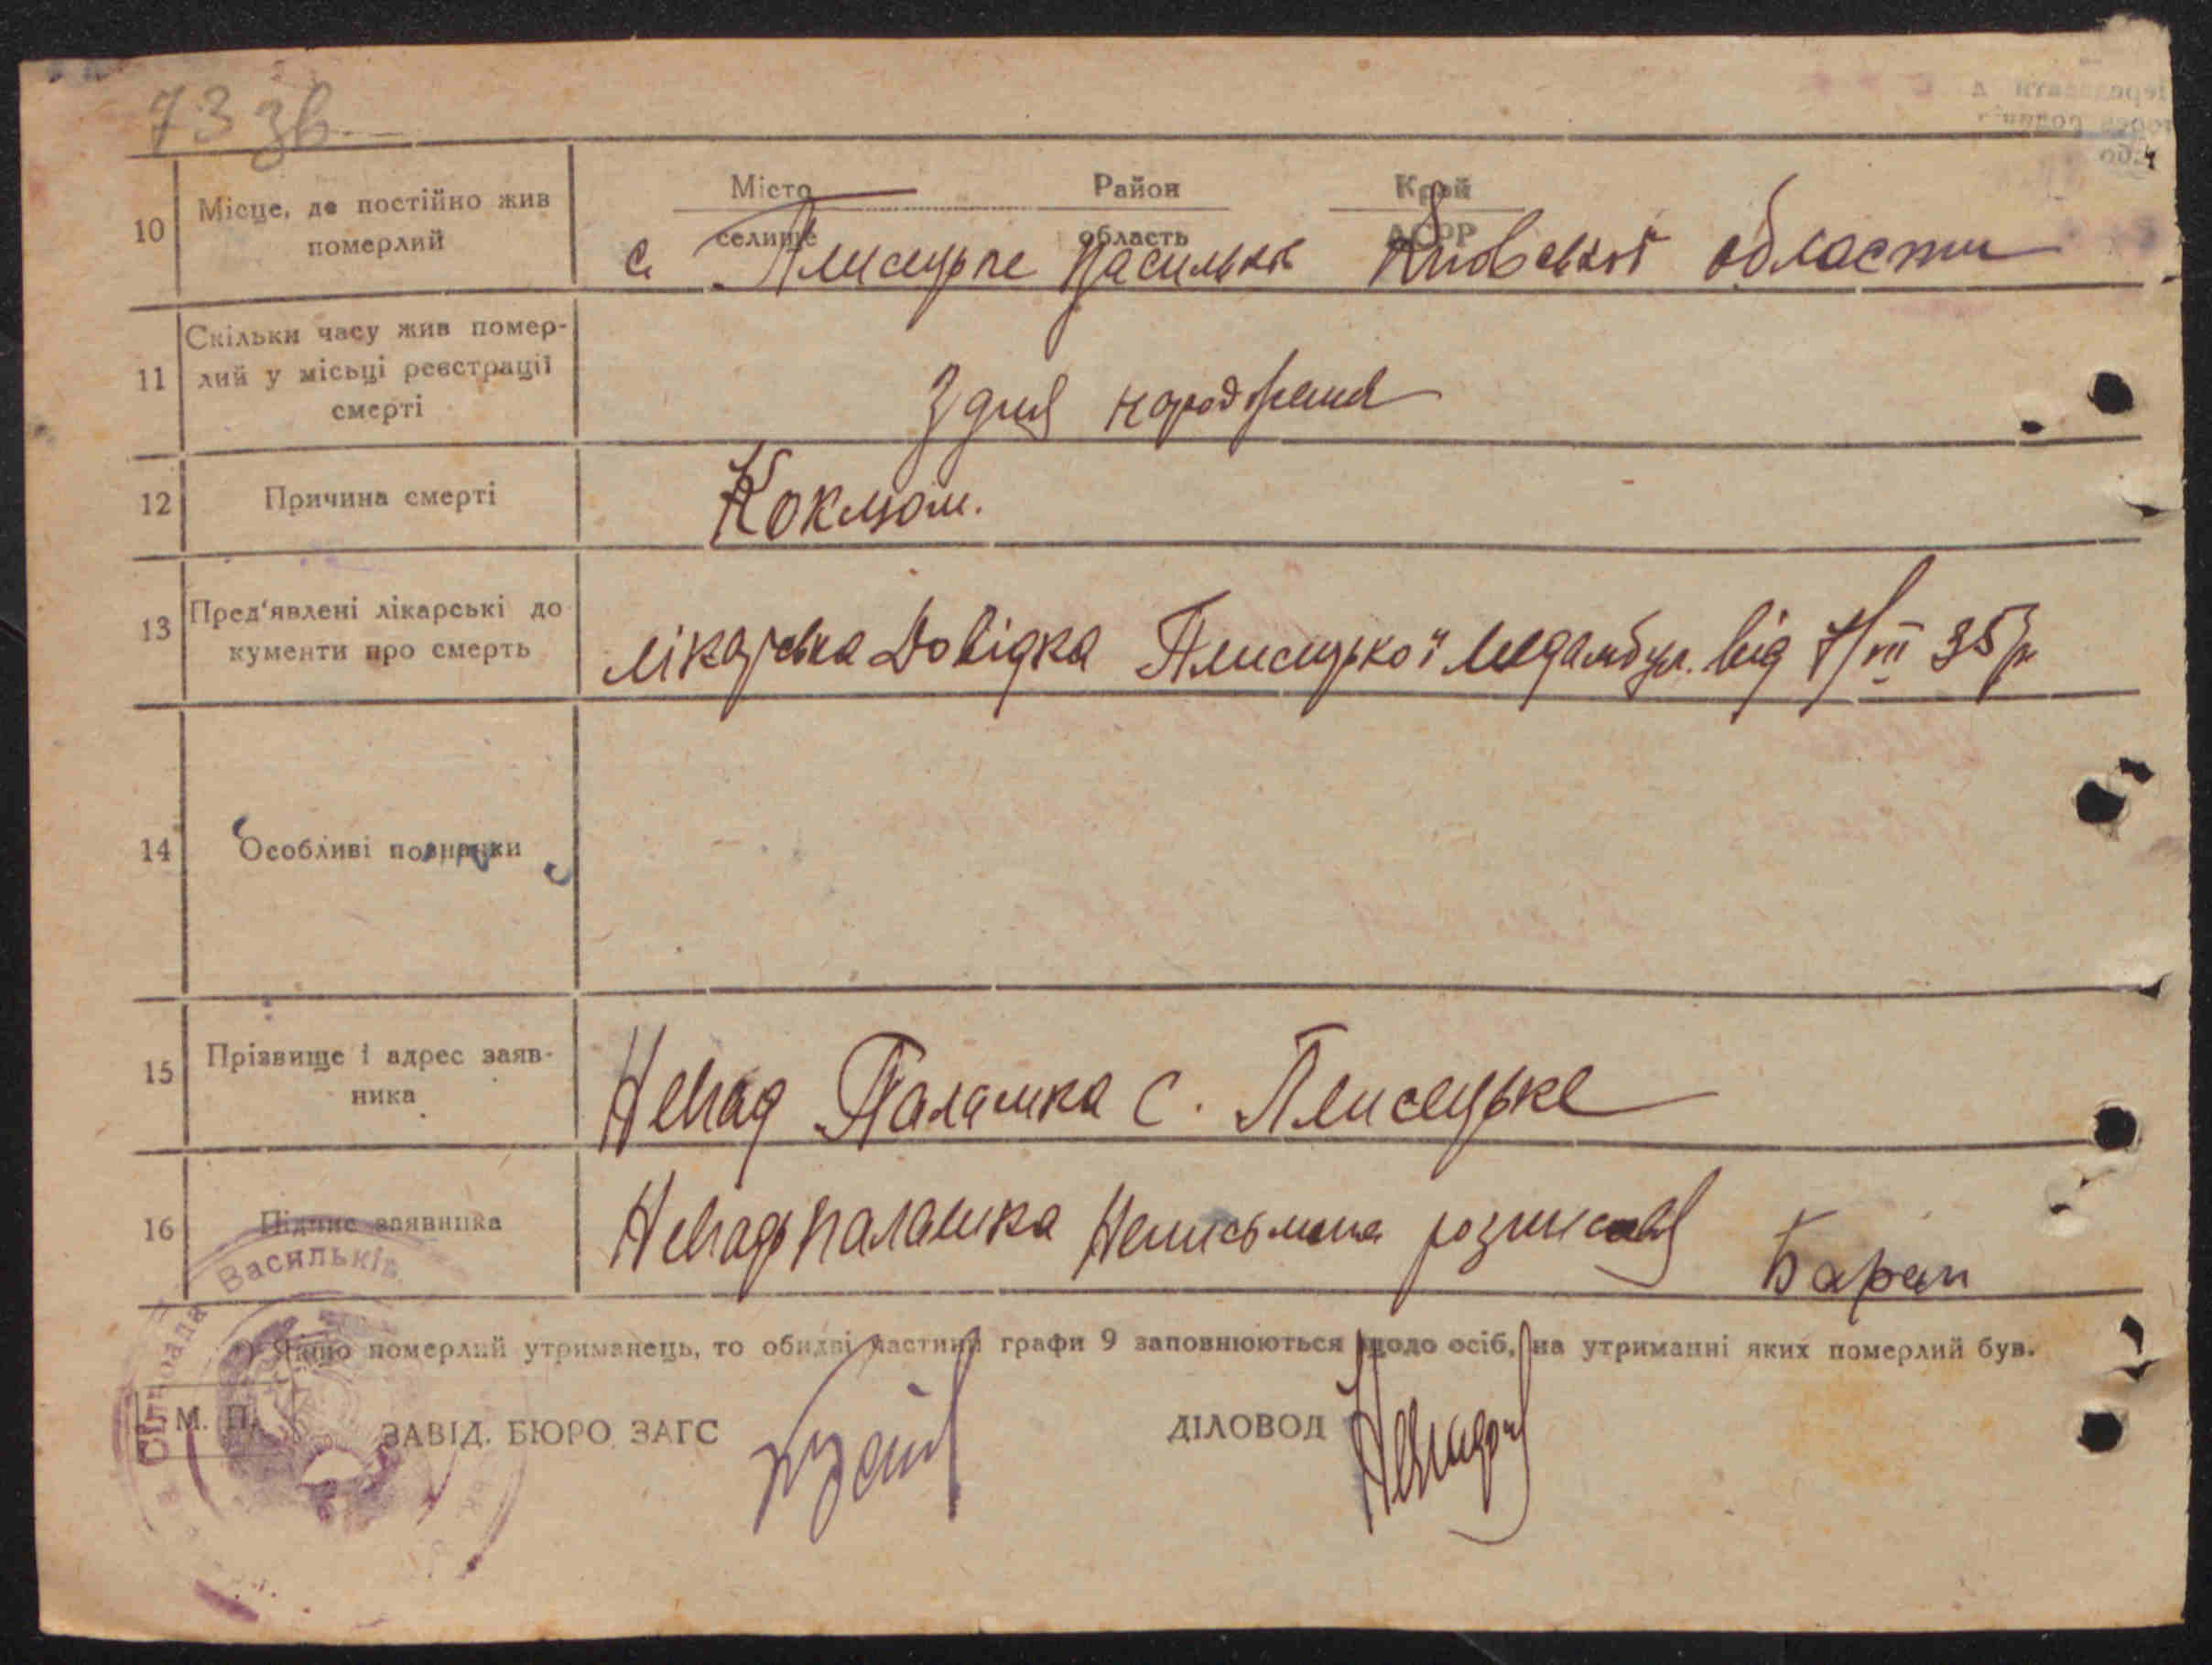 73 зв.
Місто Район Край
10 Місце, де постійно жив померлий
селище область АСРР
с. Плисецьке Васильків Київської области
11 Скільки часу жив помер-
лий у місьці реєстрації
смерті
З дня народження
12 Причина смерті
Коклюш.
13 Пред'явлені лікарські до
кументи про смерть
лікарська довідка Плисецької Медамбул. від 7/III 35 р
14 Особливі познанки
15 Прізвище і адрес заяв-
ника
Ненад Палашка с. Плисецьке
16 Підпис заявника
Ненадь Палашка Неписьмена розписався Баран
Якщо померлий утриманець, то обидві частини графи 9 заповнюються щодо осіб, на утриманні яких померлий був.
М. П. ЗАВІД. БЮРО ЗАГС ДІЛОВОД
Сільрада Васильків